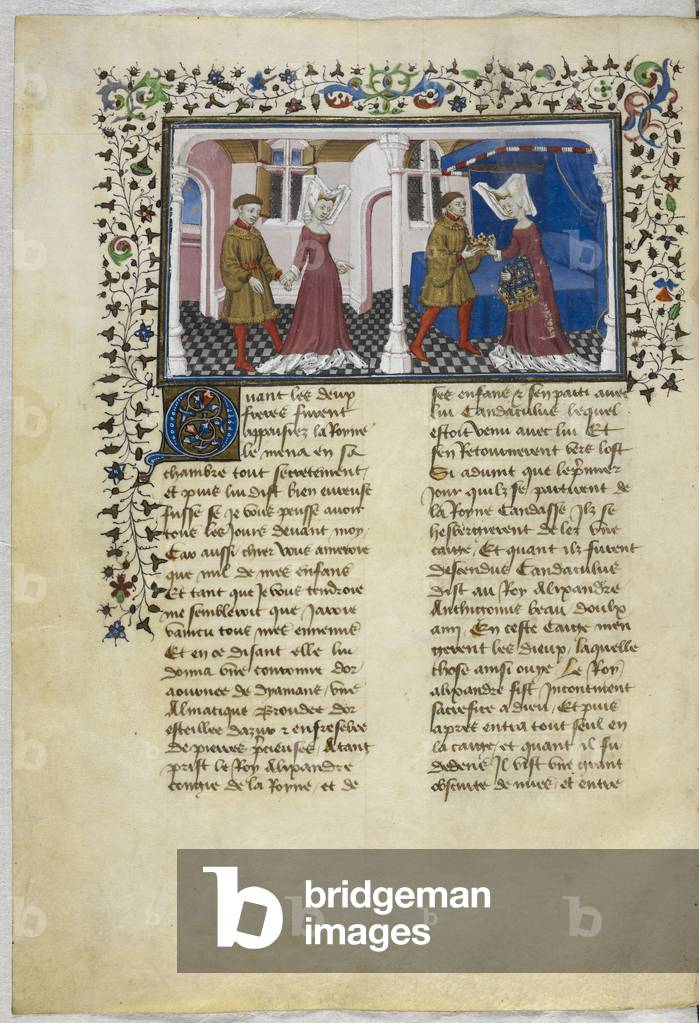 Quant les deux
freres furent
appaisiez la Royne
le mena en sa
chambre tout secretement
et puis lui dist bien eureuse
fusse se je vous peusse auoir
tous les jours deuant moy
Car aussi chier vous ameroie
que mil de mes enfans
Et tant que je vous tendroie
me sembleroit que jauroie
vaincu tous mes ennemis
Et en ce disant elle lui
donna vne couronne dor
aournee de dyamans vne
Almatique broudee dor
esteillee dazur & enfreselee
de pierres p̃cieuses Atant
prist le Roy alixandre
congie de la Royne et de
ses enfans & sen parti auec
lui Candaculus lequel
estoit venu auec lui Et
sen Retournerent vers lost
Si aduint que le p̃mier
jour quilz se partirent de
la Royne Candasse Ilz se
hesbergierent de lez vne
caue Et quant ilz furent
descendus Candaculus
dist au Roy Alixandre
Anthigonus beau doulx
amy En ceste caue men
gerent les dieux laquelle
chose ainsi ouye Le Roy
alixandre fist Incontinent
sacrefice a dieu Et puis
apres entra tout seul en
la caue et quant il fu
dedens Il vist vne grant
obscurte de nues et entre
b bridgeman
images